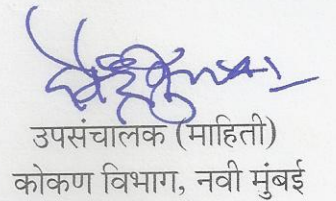 उपसंचालक (माहिती)
कोकण विभाग, नवी मुंबई